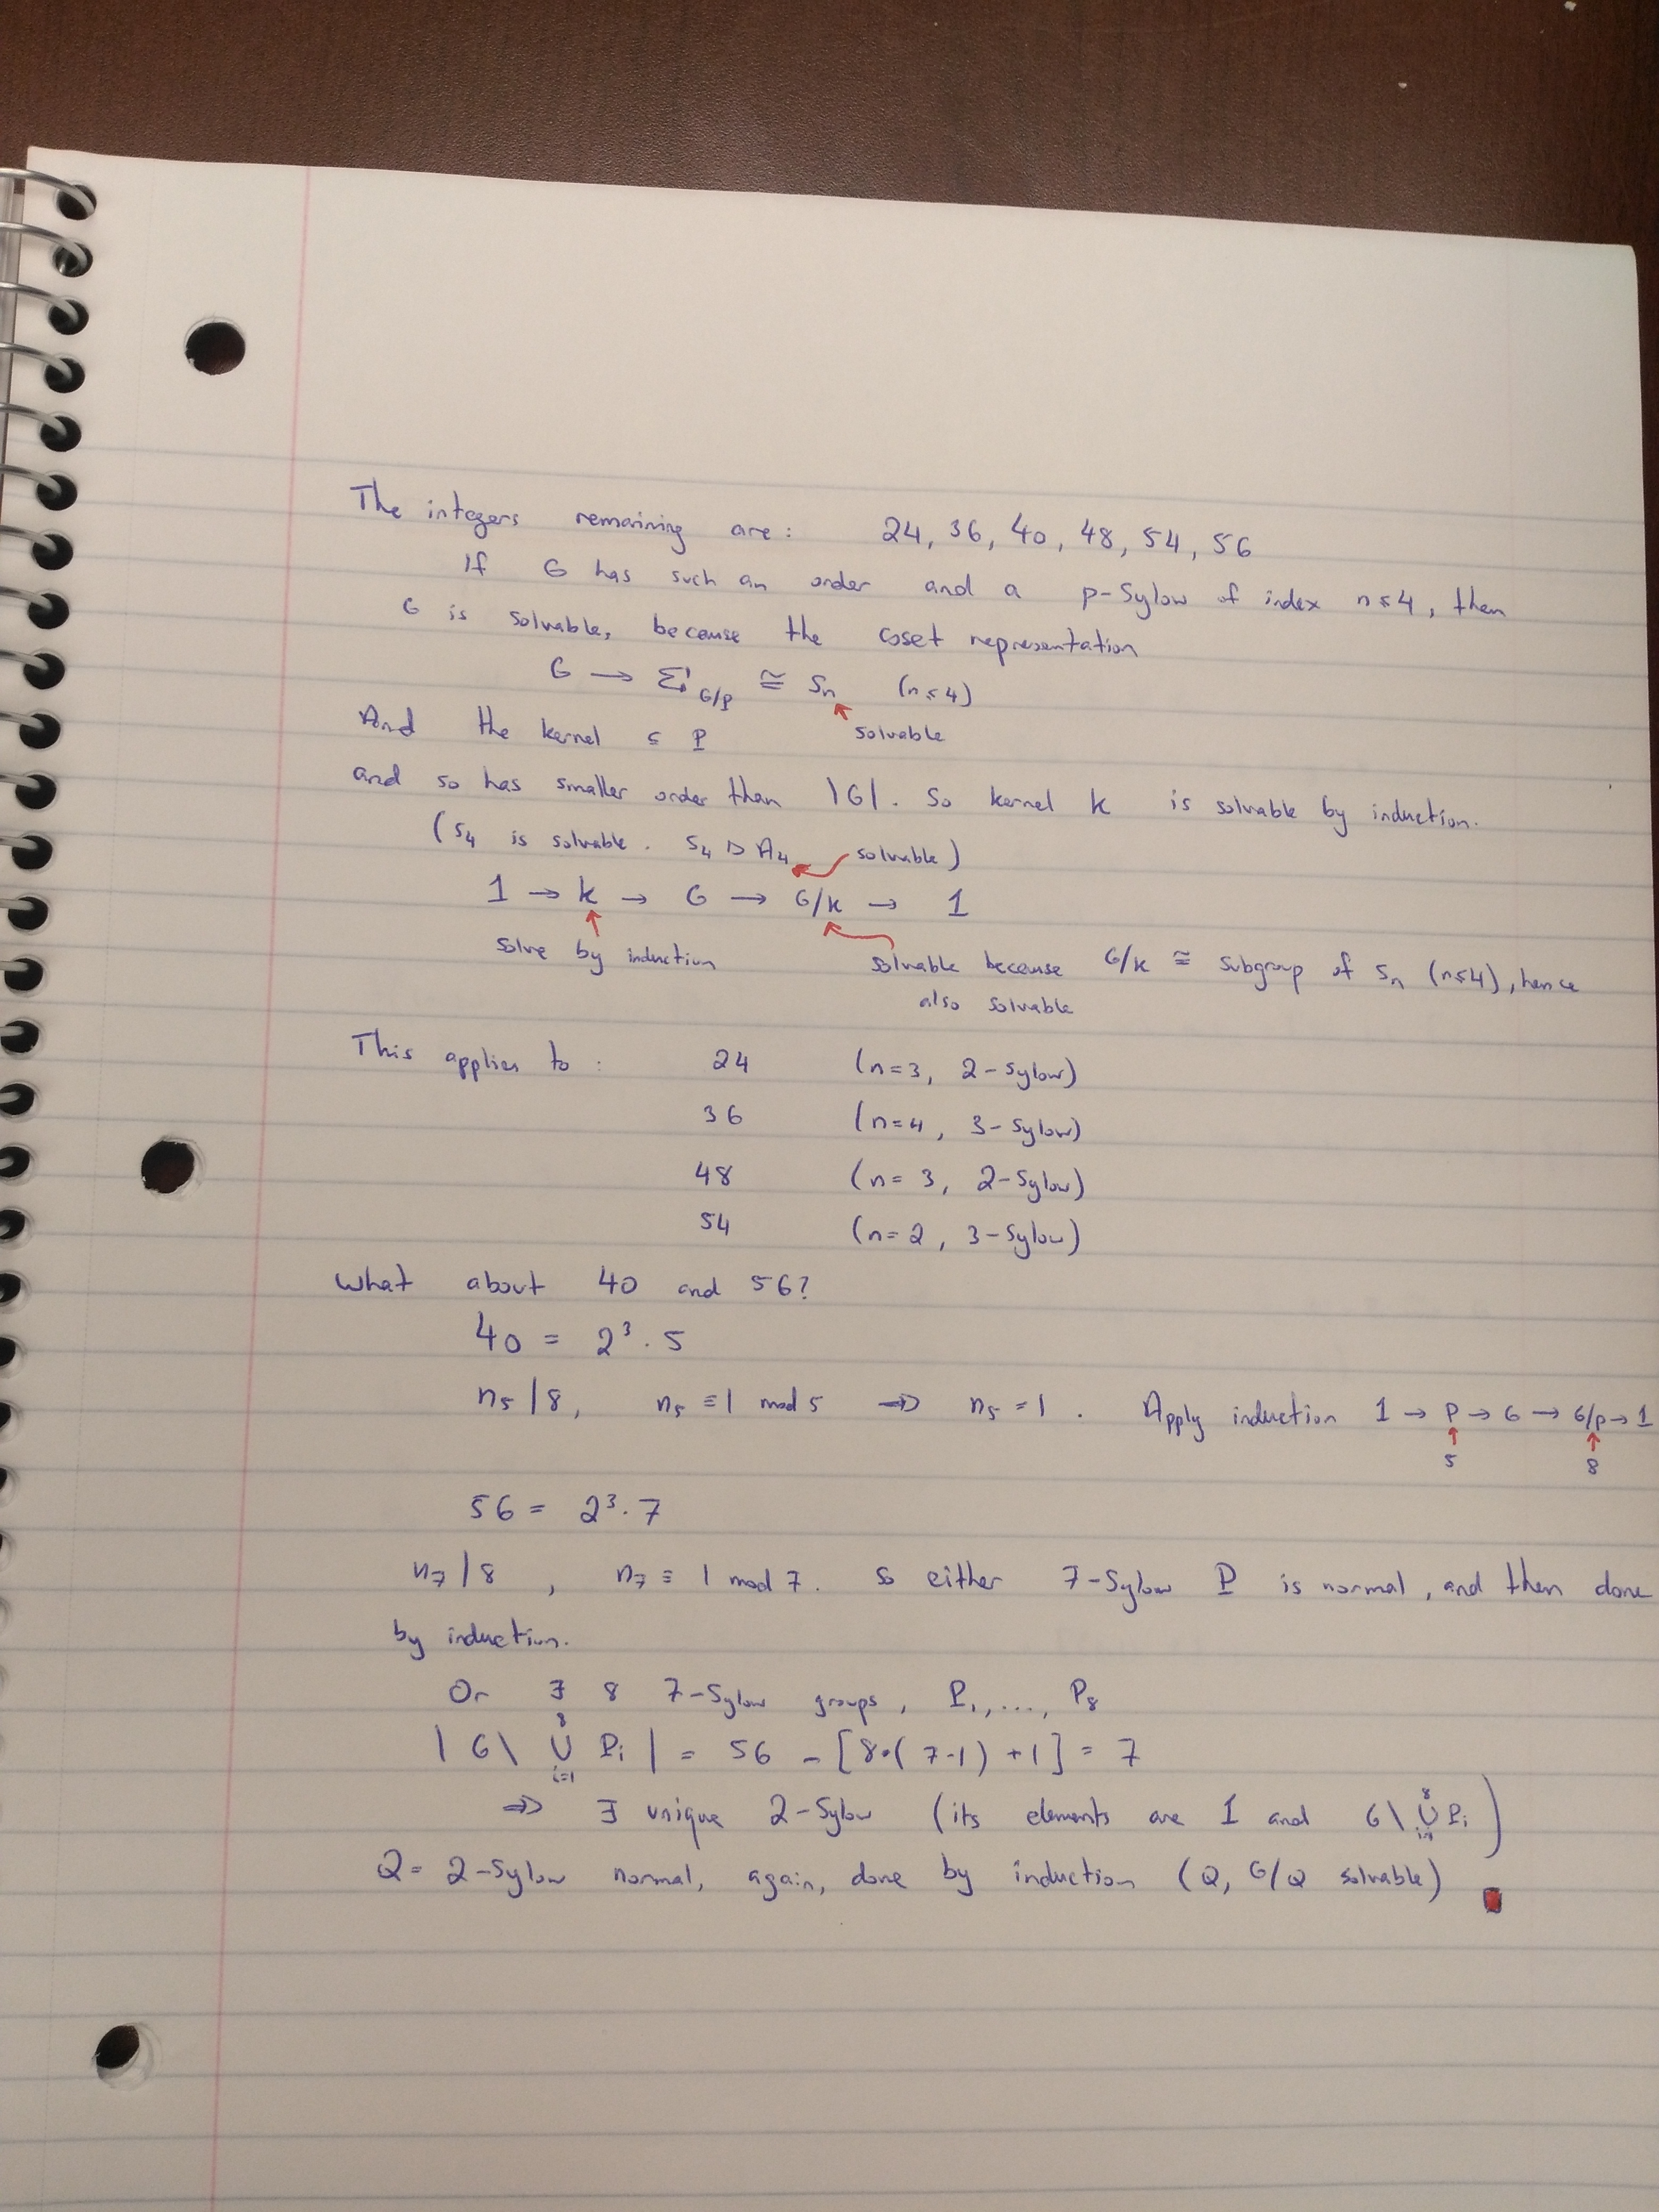 The integers remaining are: 24, 36, 40, 48, 54, 56
If G has such an order and a p-Sylow of index n≤4, then
G is solvable, because the coset representation
G → Σ_{G/P} ≅ S_n (n≤4)
And the kernel ⊆ P solvable
and so has smaller order than |G|. So kernel K is solvable by induction.
(S_4 is solvable. S_4 ▷ A_4 solvable)
1 → K → G → G/K → 1
solve by induction solvable because G/K ≅ subgroup of S_n (n≤4), hence
also solvable
This applies to: 24 (n=3, 2-Sylow)
36 (n=4, 3-Sylow)
48 (n=3, 2-Sylow)
54 (n=2, 3-Sylow)
What about 40 and 56?
40 = 2³·5
n_5 | 8, n_5 ≡ 1 mod 5 ⇒ n_5 = 1. Apply induction 1 → P → G → G/P → 1
5 8
56 = 2³·7
n_7 | 8, n_7 ≡ 1 mod 7. So either 7-Sylow P is normal, and then done
by induction.
Or ∃ 8 7-Sylow groups, P_1, ..., P_8
|G \ ⋃_{i=1}^{8} P_i| = 56 - [8·(7-1)+1] = 7
⇒ ∃ unique 2-Sylow (its elements are 1 and G \ ⋃_{i=1}^{8} P_i)
Q = 2-Sylow normal, again, done by induction (Q, G/Q solvable)